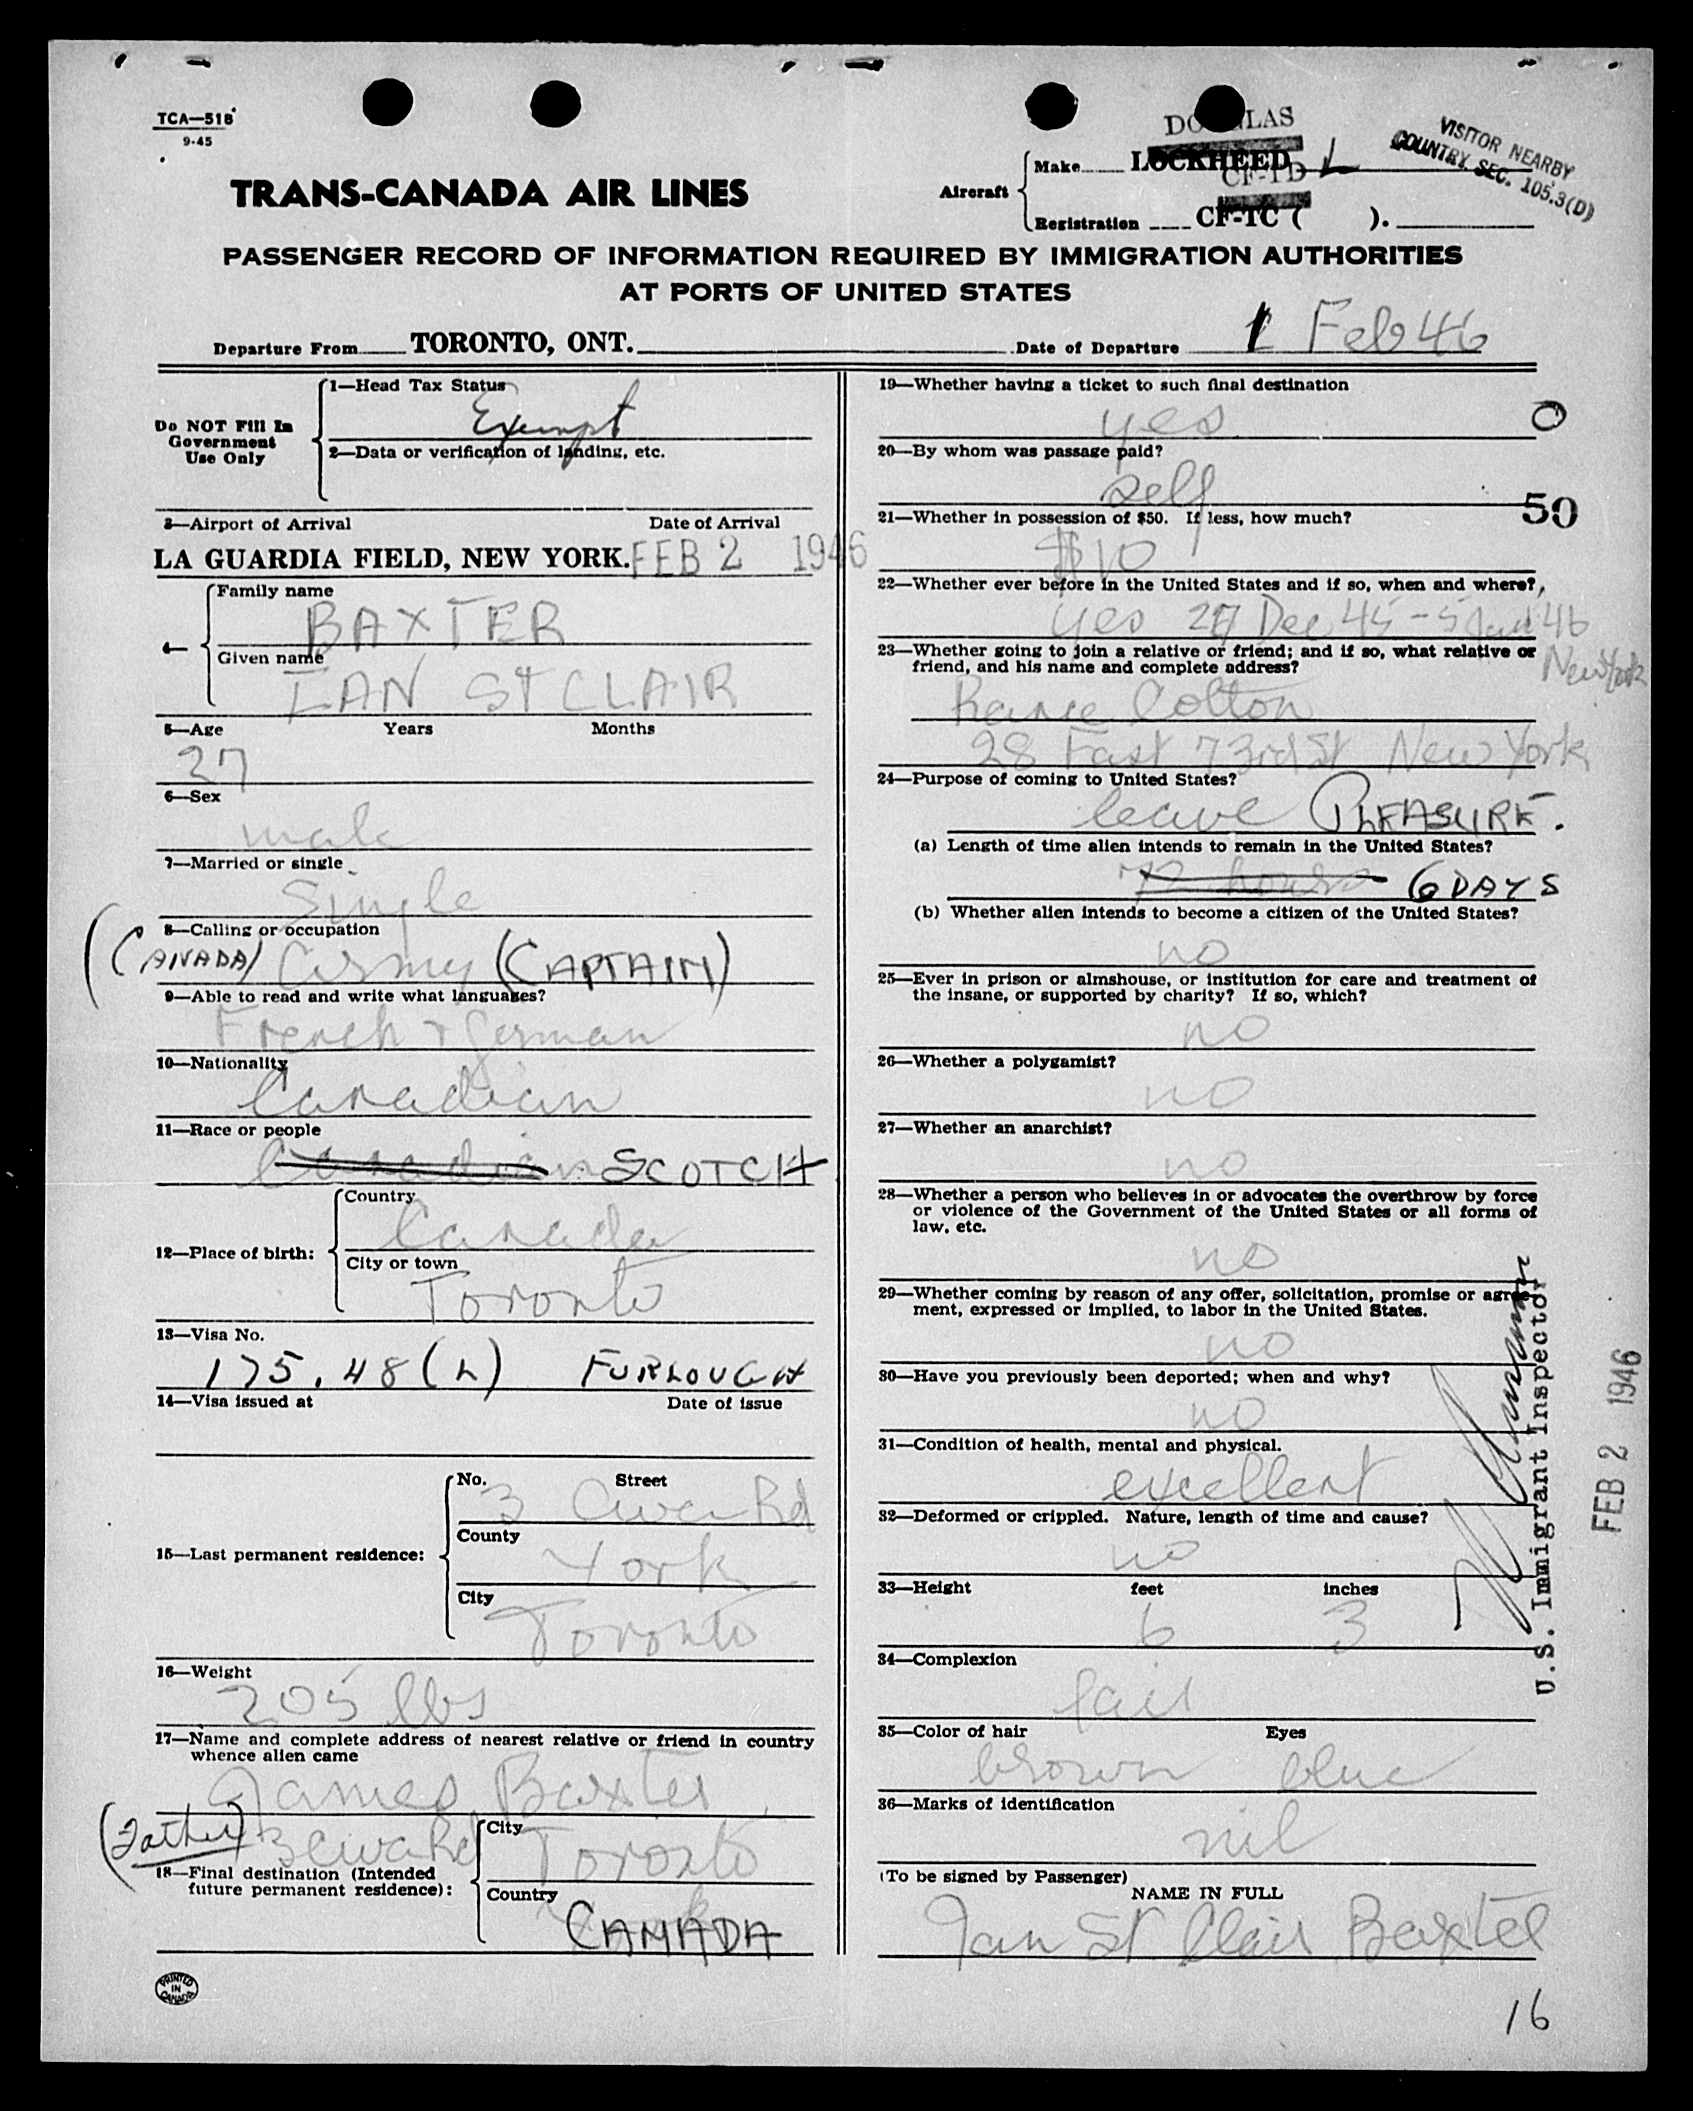 TCA—518
9-45
DOUGLAS
VISITOR NEARBY
COUNTRY. SEC. 105.3(D)
Aircraft
Make LOCKHEED
CF-TD
Registration CF-TC ( ).
TRANS-CANADA AIR LINES
PASSENGER RECORD OF INFORMATION REQUIRED BY IMMIGRATION AUTHORITIES
AT PORTS OF UNITED STATES
Departure From TORONTO, ONT. Date of Departure 1 Feb 46
Do NOT Fill In
Government
Use Only
1—Head Tax Status
Exempt
2—Data or verification of landing, etc.
3—Airport of Arrival Date of Arrival
LA GUARDIA FIELD, NEW YORK. FEB 2 1946
4—
Family name
BAXTER
Given name
IAN ST CLAIR
5—Age Years Months
27
6—Sex
male
7—Married or single
Single
8—Calling or occupation
(CANADA) Army (CAPTAIN)
9—Able to read and write what languages?
French & German
10—Nationality
Canadian
11—Race or people
Canadian SCOTCH
12—Place of birth:
Country
Canada
City or town
Toronto
13—Visa No.
175.48 (L) FURLOUGH
14—Visa issued at Date of issue
15—Last permanent residence:
No. Street
3 Rd
County
York
City
Toronto
16—Weight
205 lbs
17—Name and complete address of nearest relative or friend in country
whence alien came
James Baxter
(Father) 3 Rd
18—Final destination (Intended
future permanent residence):
City
Toronto
Country
CANADA
PRINTED
IN
CANADA
19—Whether having a ticket to such final destination
yes
0
20—By whom was passage paid?
self
50
21—Whether in possession of $50. If less, how much?
$10
22—Whether ever before in the United States and if so, when and where?,
yes 27 Dec 45 - 5 Jan 46
New York
23—Whether going to join a relative or friend; and if so, what relative or
friend, and his name and complete address?
Colton
28 East 73rd St New York
24—Purpose of coming to United States?
leave PLEASURE.
(a) Length of time alien intends to remain in the United States?
72 hours 6 DAYS
(b) Whether alien intends to become a citizen of the United States?
no
25—Ever in prison or almshouse, or institution for care and treatment of
the insane, or supported by charity? If so, which?
no
26—Whether a polygamist?
no
27—Whether an anarchist?
no
28—Whether a person who believes in or advocates the overthrow by force
or violence of the Government of the United States or all forms of
law, etc.
no
29—Whether coming by reason of any offer, solicitation, promise or agree-
ment, expressed or implied, to labor in the United States.
no
30—Have you previously been deported; when and why?
no
31—Condition of health, mental and physical.
excellent
32—Deformed or crippled. Nature, length of time and cause?
no
33—Height feet inches
6 3
34—Complexion
fair
35—Color of hair Eyes
brown blue
36—Marks of identification
nil
(To be signed by Passenger)
NAME IN FULL
Ian St Clair Baxter
U.S. Immigrant Inspector
FEB 2 1946
16